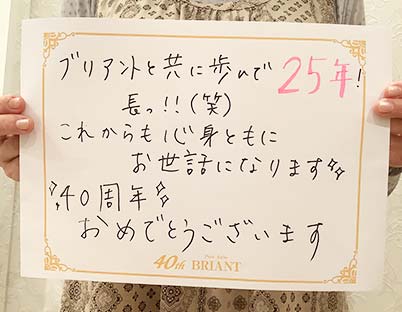 ブリアントと共に歩んで 25年!
長っ!!(笑)
これからも心身ともに
お世話になります
40周年
おめでとうございます
40th BRIANT